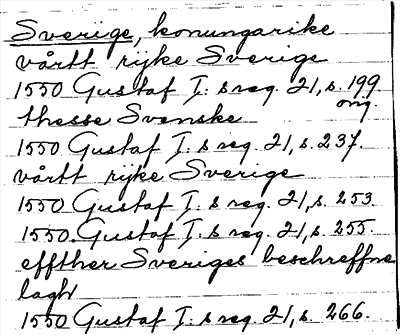 Sveriige, konungarike
vårtt rijke Sverige
1550 Gustaf I:s reg. 21, s. 199
org.
thesse Svenske
1550 Gustaf I:s reg. 21, s. 237.
vårtt rijke Sverige
1550 Gustaf I:s reg. 21, s. 253
1550. Gustaf I:s reg. 21, s. 255.
effther Sveriges beschreffne
lagh
1550 Gustaf I:s reg. 21, s. 266.